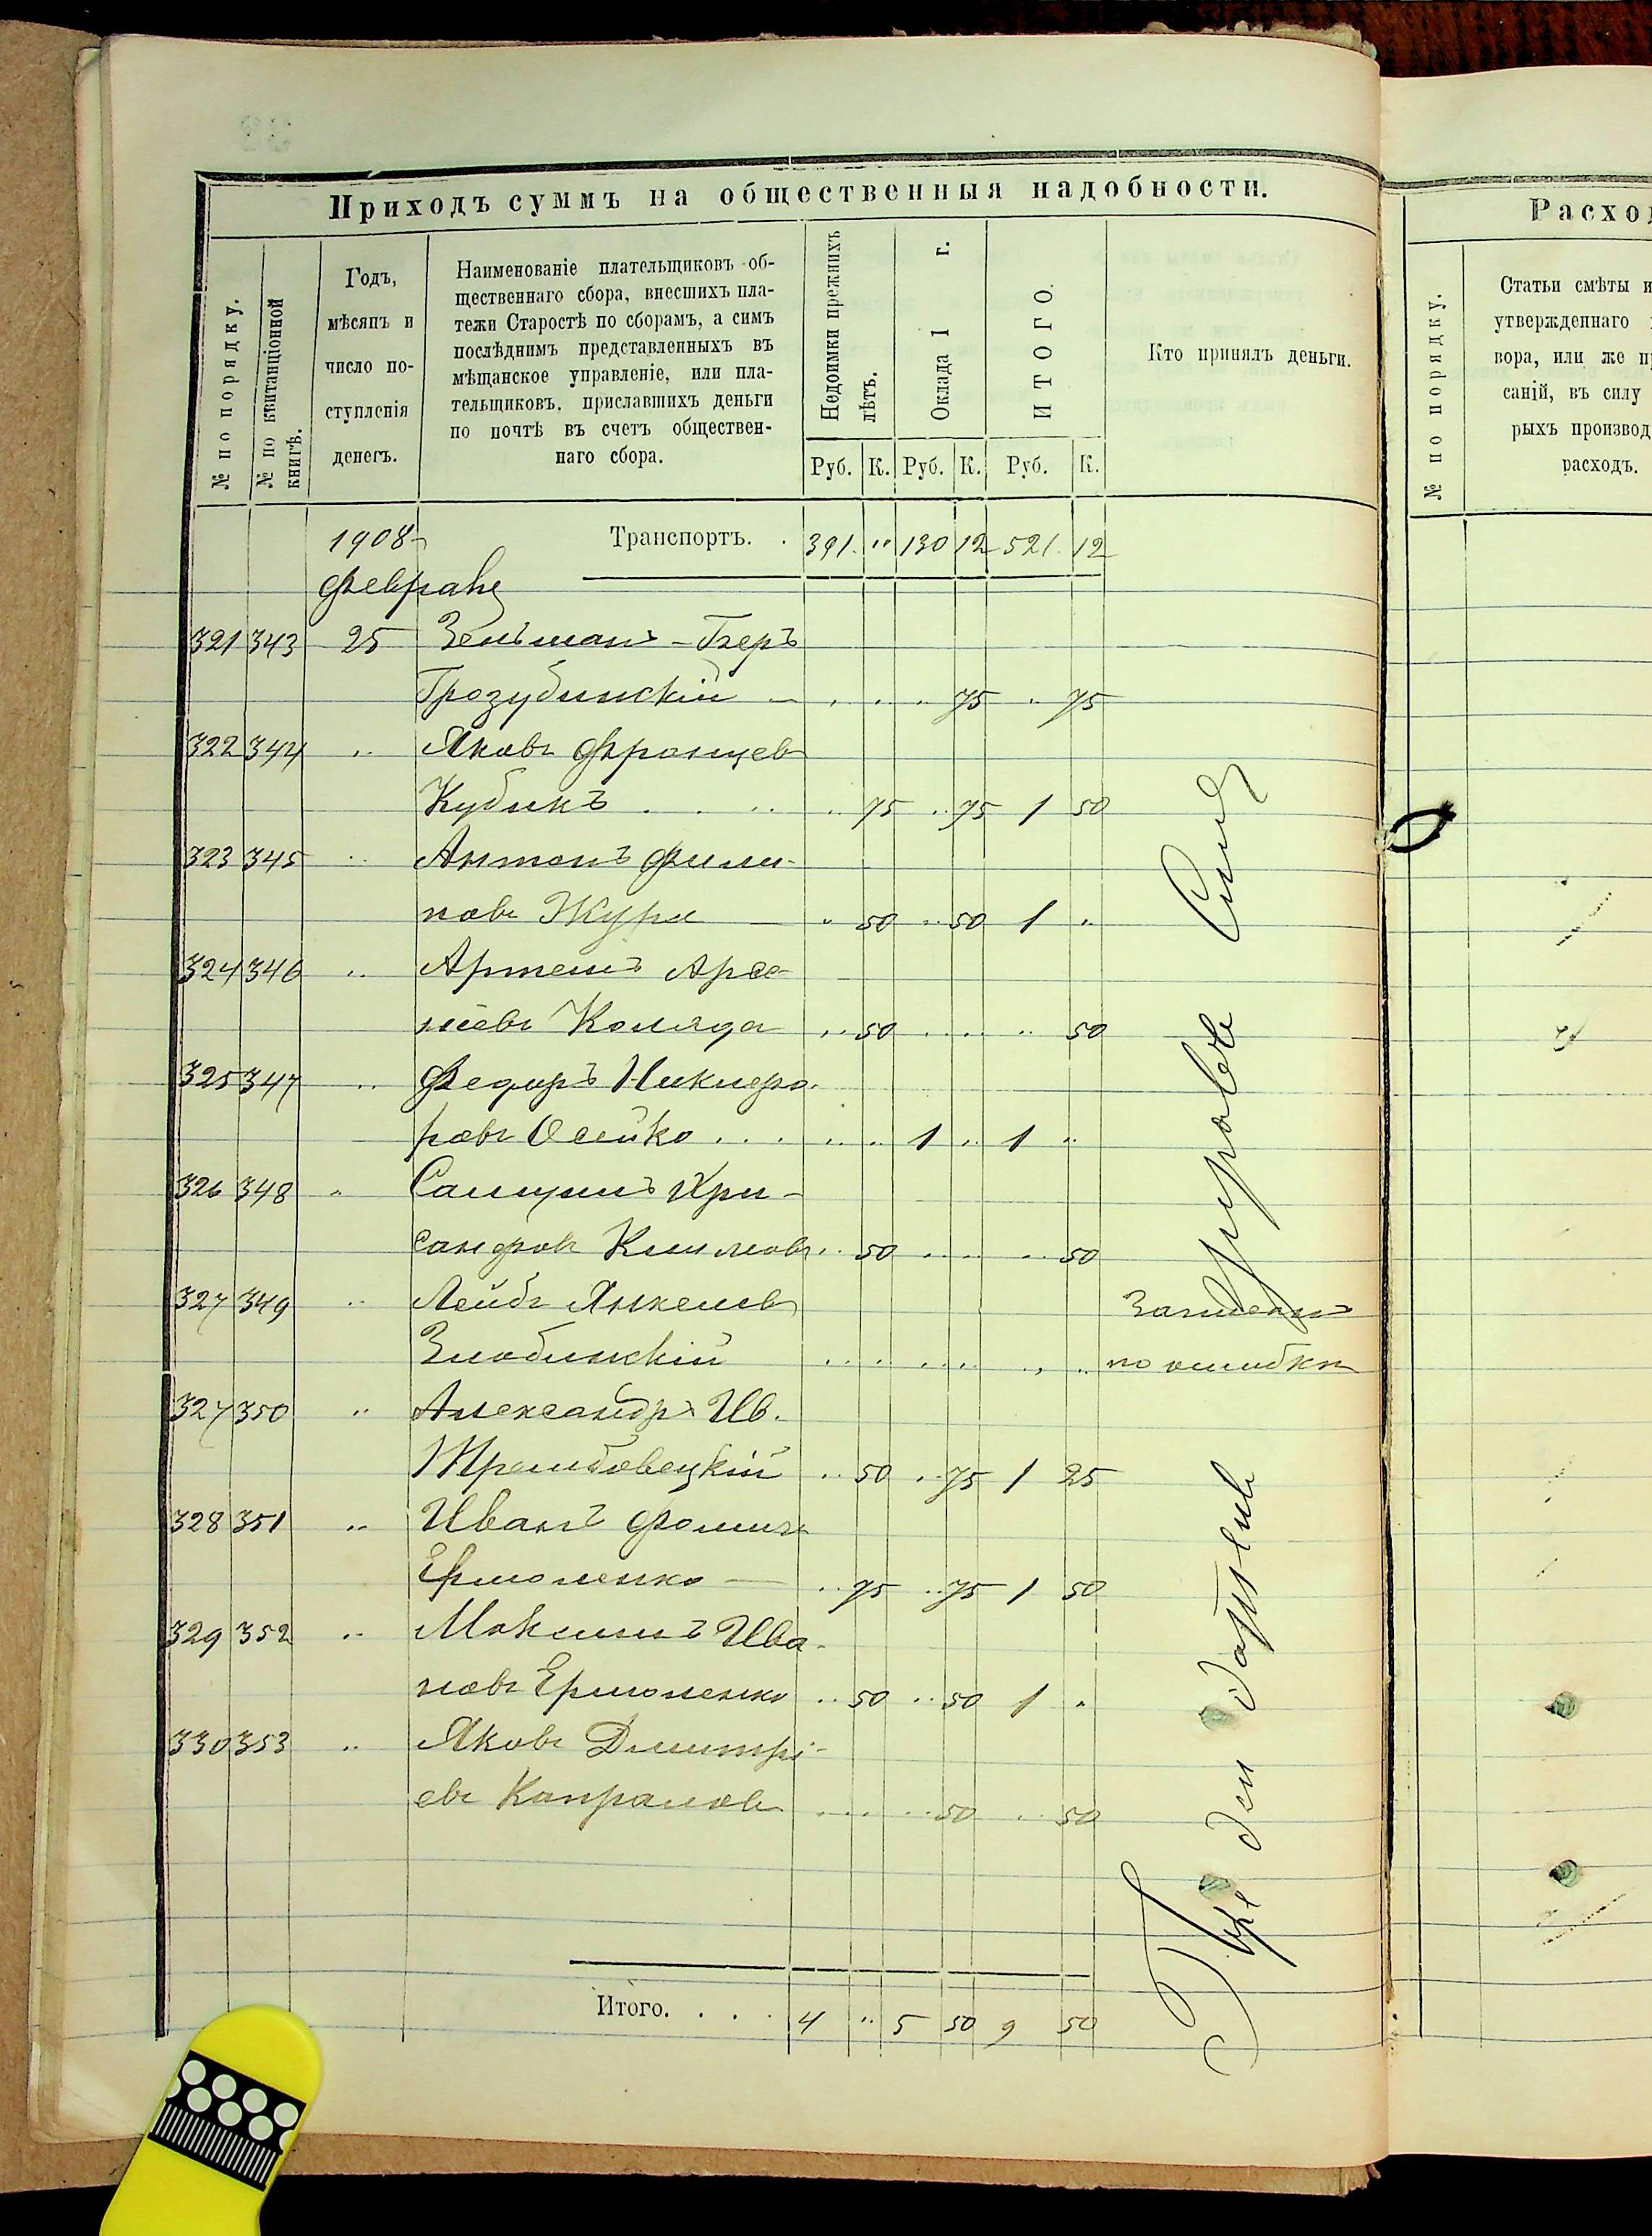 Приходъ суммъ на общественныя надобности.
№ по порядку.
№ по квитанціонной
книгѣ.
Годъ,
мѣсяцъ и
число по-
ступленія
денегъ.
Наименованіе плательщиковъ об-
щественнаго сбора, внесшихъ пла-
тежи Старостѣ по сборамъ, а симъ
послѣднимъ представленныхъ въ
мѣщанское управленіе, или пла-
тельщиковъ, приславшихъ деньги
по почтѣ въ счетъ обществен-
наго сбора.
Недоимки прежнихъ
лѣтъ.
Оклада 1 г.
ИТОГО.
Кто принялъ деньги.
Руб. К. Руб. К. Руб. К.
1908 Транспортъ. . 391 " 130 12 521 12
Февраль
321 343 25 Зельманъ-Беръ
Грозубинскій — . . . . 75 .. 75
322 344 .. Яковъ Францевъ
Кубикъ . . . .. 75 .. 75 1 50
323 345 .. Антонъ Фили-
повъ Жура — .. 50 .. 50 1 ..
324 346 .. Артемъ Арсе-
ніевъ Коляда .. 50 .. .. .. 50
325 347 .. Федоръ Никифо-
ровъ Осейко . . . .. .. 1 .. 1 ..
326 348 .. Самуилъ Хри-
санфовъ Климовъ .. 50 .. .. .. 50
327 349 .. Лейба Янкелевъ
Злобинскій .. .. .. .. .. ..
по ошибкѣ
327 350 .. Александръ Ив.
Трембовецкій .. 50 .. 75 1 25
328 351 .. Иванъ Фоминъ
Ермоленко — .. 75 .. 75 1 50
329 352 .. Максимъ Ива-
новъ Ермоленко .. 50 .. 50 1 ..
330 353 .. Яковъ Дмитрі-
евъ Капраловъ .. .. .. 50 .. 50
Итого. . . . 4 " 5 50 9 50
Расход
№ по порядку.
Статьи смѣты и
утвержденнаго
вора, или же п
саній, въ силу
рыхъ производ
расходъ.